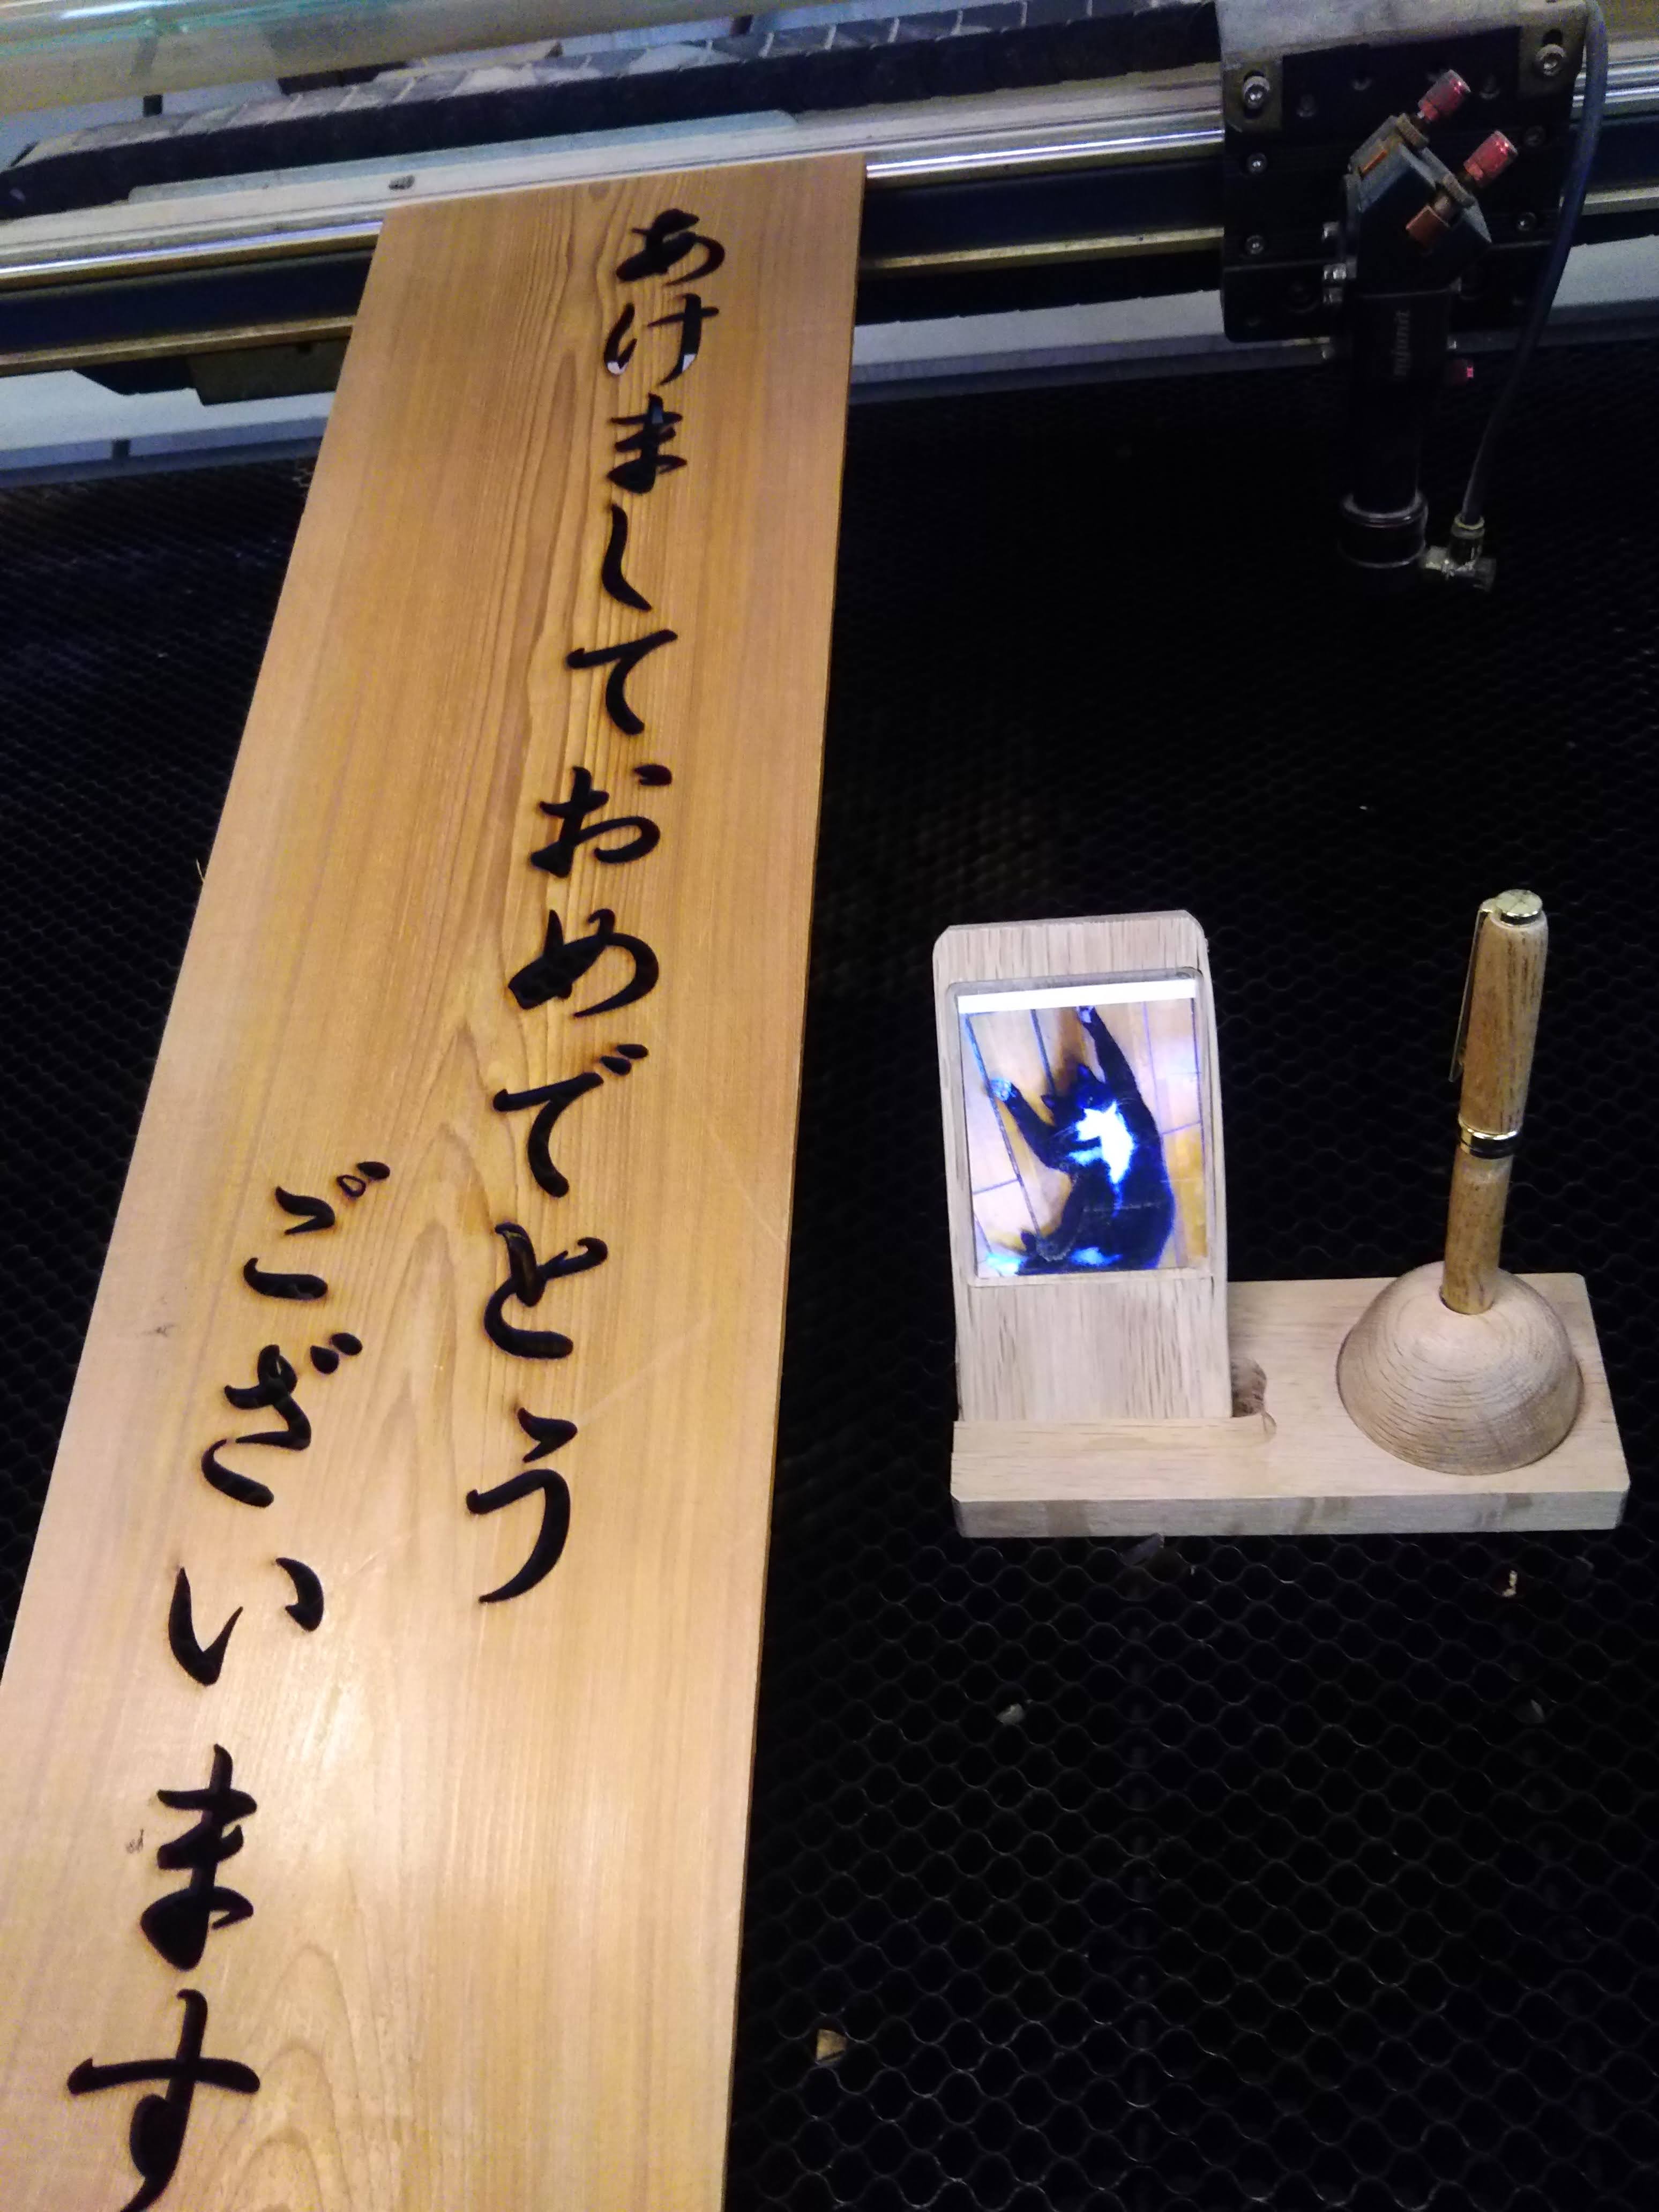 あけましておめでとう
ございます